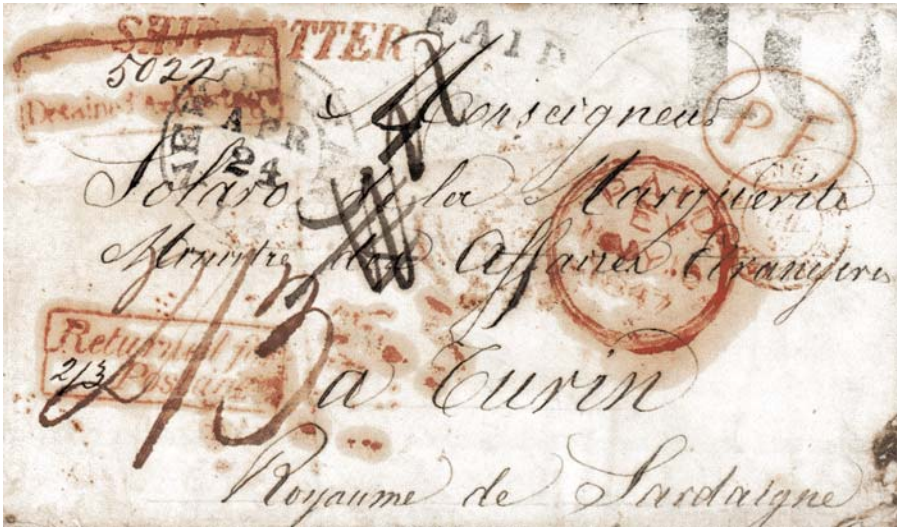 SHIP LETTER
PAID
10
5022
Detained for Postage
APR
24
Monseigneur
P.F.
Solaro de la Marguerite
PAID
1847
Ministre des Affaires Etrangeres
2/3
Returned for
Postage
2/3
a Turin
Royaume de Sardaigne